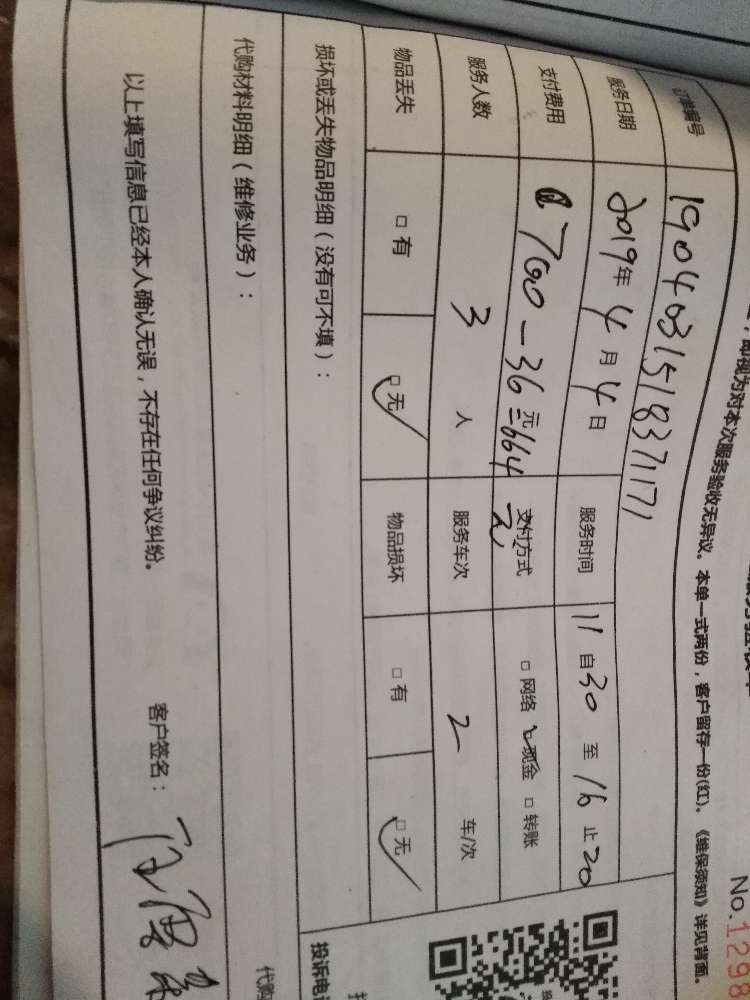 No.1298
，即视为对本次服务验收无异议。本单一式两份，客户留存一份(红)。《维保须知》详见背面。
订单编号 190403151837171
服务日期 2019年4月4日 服务时间 11自30至16止20
支付费用 700-36元=664元 支付方式 □网络 现金 □转账
服务人数 3人 服务车次 2车/次
物品丢失 □有 □无 物品损坏 □有 □无
损坏或丢失物品明细（没有可不填）：
投诉电
代购材料明细（维修业务）：
代购
以上填写信息已经本人确认无误，不存在任何争议纠纷。 客户签名：